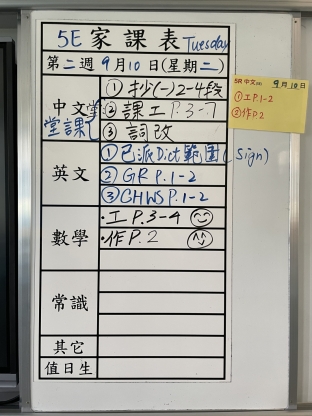 5E 家課表 Tuesday
第二週 9月10日(星期二)
中文
堂課
①抄(一)2-4段
②課工P.3-7
③詞改
英文
①已派Dict範圍(Sign)
②GR P.1-2
③CHWS P.1-2
數學
·工P.3-4
·作P.2
常識
其它
值日生
5R 中文 9月10日
①工P.1-2
②作P.2